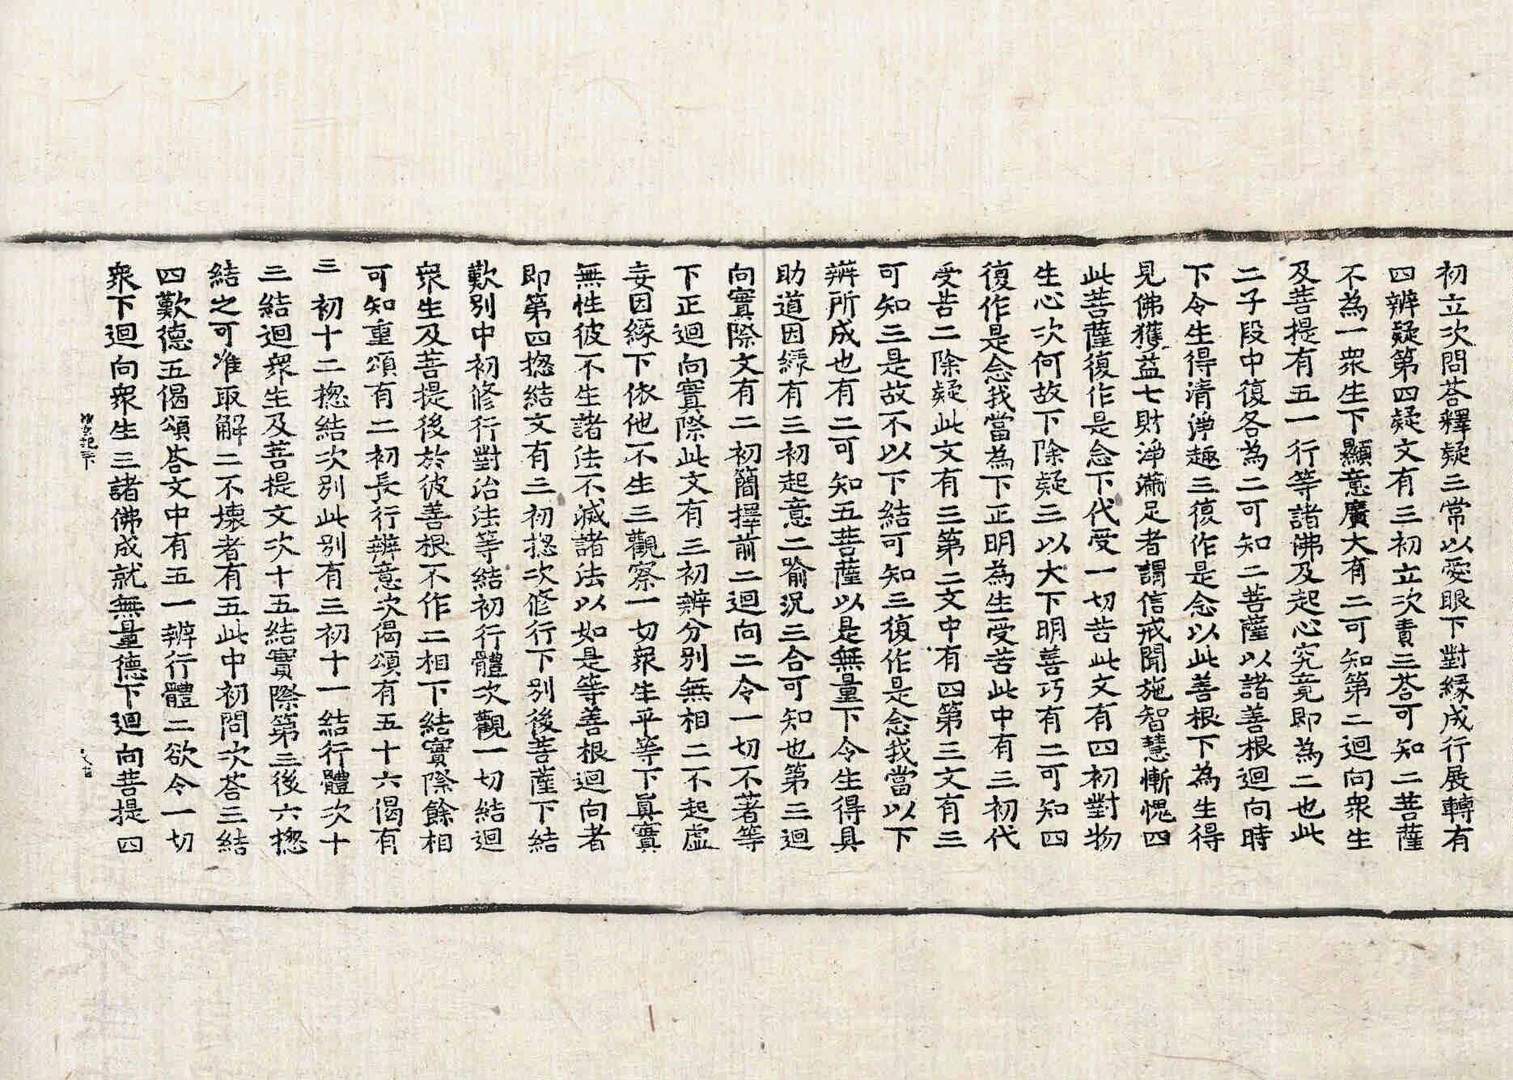 初立次問荅釋疑三常以愛眼下對緣成行展轉有
四辨疑第四疑文有三初立次責三荅可知二菩薩
不為一衆生下顯意廣大有二可知第二迴向衆生
及菩提有五一行等諸佛及起心究竟即為二也此
二子段中復各為二可知二菩薩以諸善根迴向時
下令生得清淨趣三復作是念以此善根下為生得
見佛獲益七財淨滿足者謂信戒聞施智慧慚愧四
此菩薩復作是念下代受一切苦此文有四初對物
生心次何故下除疑三以大下明善巧有二可知四
復作是念我當為下正明為生受苦此中有三初代
受苦二除疑此文有三第二文中有四第三文有三
可知三是故不以下結可知三復作是念我當以下
辨所成也有二可知五菩薩以是無量下令生得具
助道因緣有三初起意二喻況三合可知也第三迴
向實際文有二初簡擇前二迴向二令一切不著等
下正迴向實際此文有三初辨分別無相二不起虛
妄因緣下依他不生三觀察一切衆生平等下真實
無性彼不生諸法不滅諸法以如是等善根迴向者
即第四揔結文有三初揔次修行下別後菩薩下結
歎別中初修行對治法等結初行體次觀一切結迴
衆生及菩提後於彼善根不作二相下結實際餘相
可知重頌有二初長行辨意次偈頌有五十六偈有
三初十二揔結次別此別有三初十一結行體次十
三結迴衆生及菩提文次十五結實際第三後六揔
結之可准取解二不壞者有五此中初問次荅三結
四歎德五偈頌荅文中有五一辨行體二欲令一切
衆下迴向衆生三諸佛成就無量德下迴向菩提四